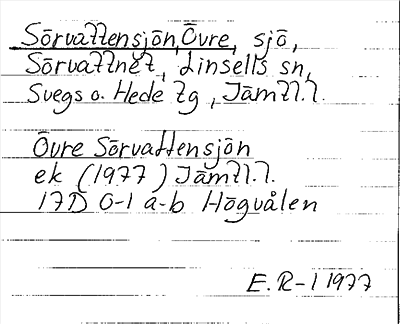 Sörvattensjön, Övre, sjö,
Sörvattnet, Linsells sn,
Svegs o. Hede tg, Jämtl.l.
Övre Sörvattensjön
ek (1977) Jämtl.l.
17D 0-1 a-b Högvålen
E.R-l 1977